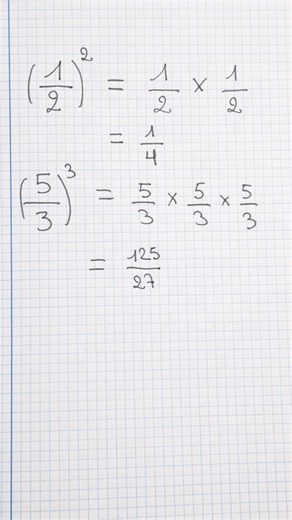 (1/2)² = 1/2 × 1/2
= 1/4
(5/3)³ = 5/3 × 5/3 × 5/3
= 125/27